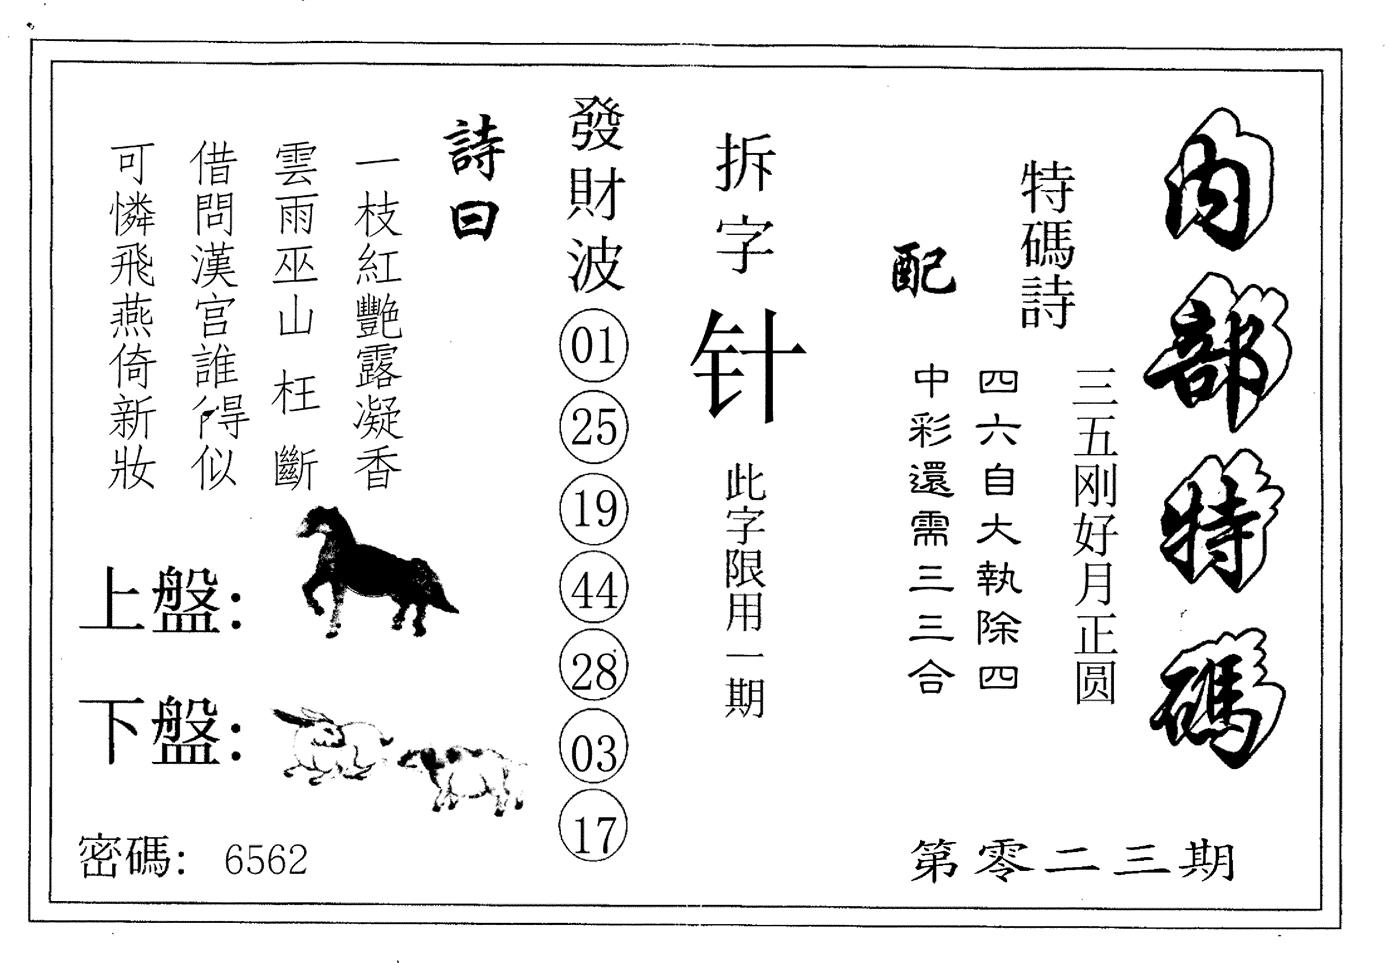 内部特碼
特碼詩
三五刚好月正圆
四六自大執除四
配
中彩還需三三合
第零二三期
拆字
针
此字限用一期
發財波
01
25
19
44
28
03
17
詩曰
一枝紅艷露凝香
雲雨巫山枉斷
借問漢官誰得似
可憐飛燕倚新妝
上盤:
下盤:
密碼: 6562